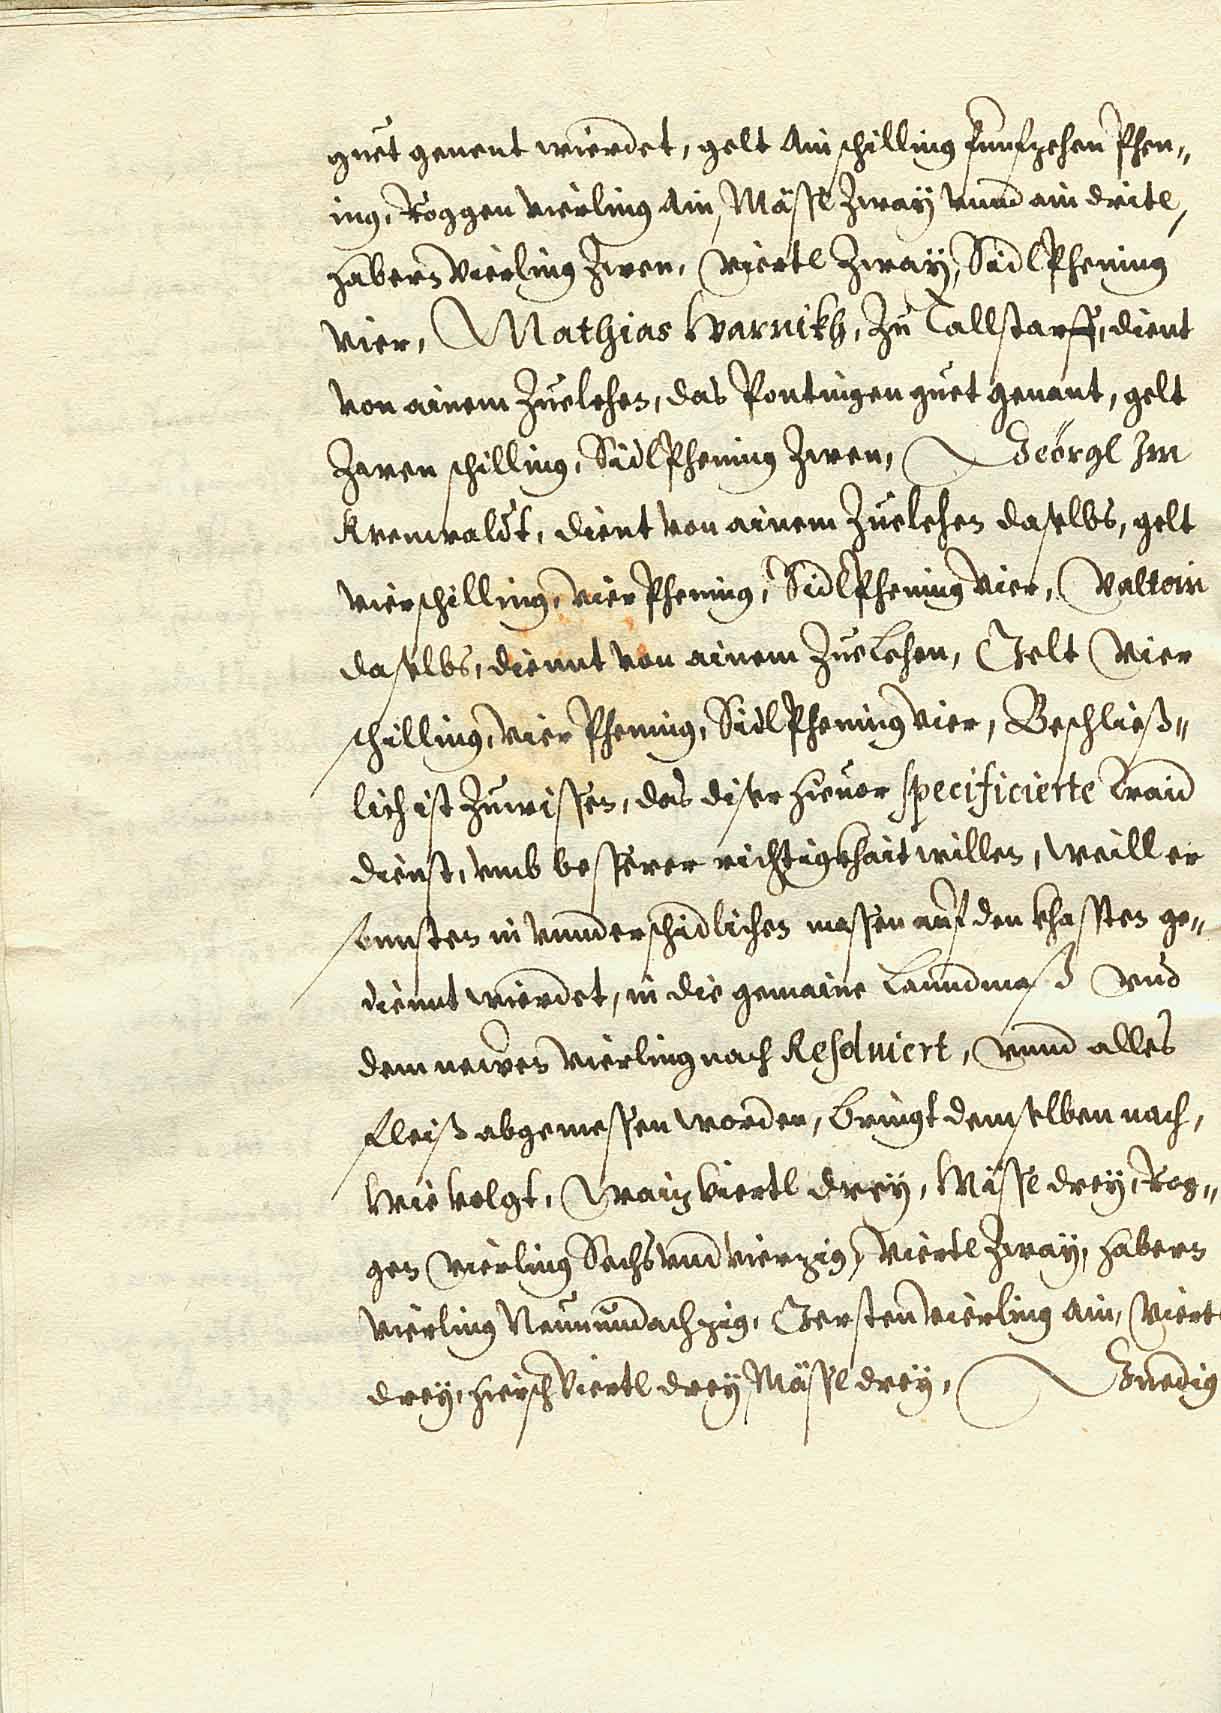 guet genent wierdet, gelt Ain schilling funfzehen Phen„
ing, Roggen vierling Ain, Mässl Zway vnnd ain dritl,
habern Vierling Zwen, viertl Zway, Sidl Phening
vier, Mathias Warnikh, Zu Tallstarff, dient
von ainem Zuelehen, das Pontingen guet genant, gelt
Zwen schilling, Sidl Phening Zwen, Geörgl Im
Krenwaldt, dient von ainem Zuelehen daselbs, gelt
vier schilling, vier Phening, Sidl Phening vier, Valtan
daselbs, diennt von ainem Zuelehen, Gelt Vier
schilling, vier Phening, Sidl Phening vier, Beschließ„
lich ist Zuwissen, das diser hieuor specificierte Traid
dienst, vmb besserer richtigkhait willen, weill er
sonnsten in vnnderschidlichen massen auf den Chassten ge„
diennt wierdet, in die gemaine Lanndmaß vnd
dem newen Vierling nach Resoluiert, vnnd alles
fleiß abgemessen worden, bringt demselben nach,
Wie volgt, Waiz Viertl drey, Mässl drey, Rog„
gen Vierling Sechsvndvierzig, Viertl Zway, habern
Vierling Neunvndachzig, Gersten Vierling Ain, Viertl
drey, hiersch Viertl drey Mässl drey, Gnedig